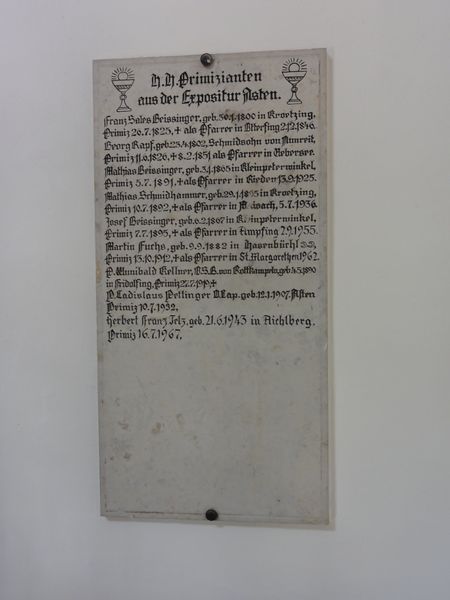 H.H.Primizianten
aus der Expositur Asten.
Franz Sales Beissinger, geb. 1800 in Kroetzing,
Primiz 26.7.1825, + als Pfarrer in 2.12.1846.
Georg Kapf, geb. 25.4.1802, Schmidsohn von
Primiz 11.6.1826, + 8.2.1851 als Pfarrer in Uebersee.
Mathias Beissinger, geb. 3.4.1865 in Kleinpeterwinkel,
Primiz 5.7.1891, + als Pfarrer in Rieden 13.9.1925.
Mathias Schmidhammer, geb. 29.1.1865 in Kroetzing,
Primiz 10.7.1892, + als Pfarrer in 5.7.1936.
Josef Beissinger, geb. 6.2.1867 in Kleinpeterwinkel,
Primiz 7.7.1895, + als Pfarrer in Ampfing 2.9.1955.
Martin Fuchs, geb. 9.9.1882 in Hasenbürhl
Primiz 13.10.1912, + als Pfarrer in St. Margarethen 1962.
P. Wunibald Kellner, O.S.B. von geb. 4.5.1890
in Fridolfing, Primiz 27.7.1919, +
P. Ladislaus Pettinger O.Cap. geb. 12.1.1907, Asten
Primiz 10.7.1932.
Herbert Franz Jelz, geb. 21.6.1943 in Aichlberg.
Primiz 16.7.1967.